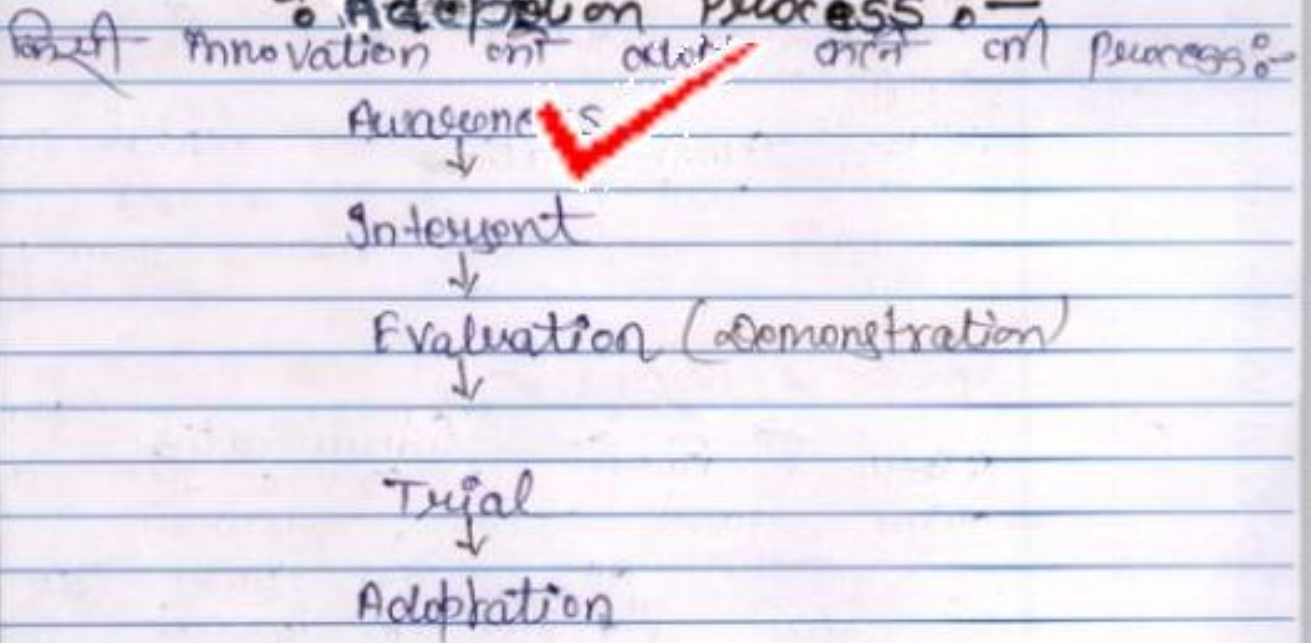 : Adoption Process :-
किसी Innovation को adopt करने की Process :-
Awareness
↓
Interent
↓
Evaluation (Demonstration)
↓
Trial
↓
Adoptation